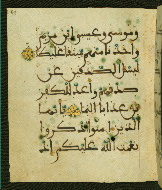 وموسى وعيسى ابن مريم
واخذنا منهم ميثقا غليظا
ليسئل الصدقين عن
صدقهم واعد للكفر
ين عذابا اليما يايها
الذين امنوا اذكروا
نعمة الله عليكم اذ